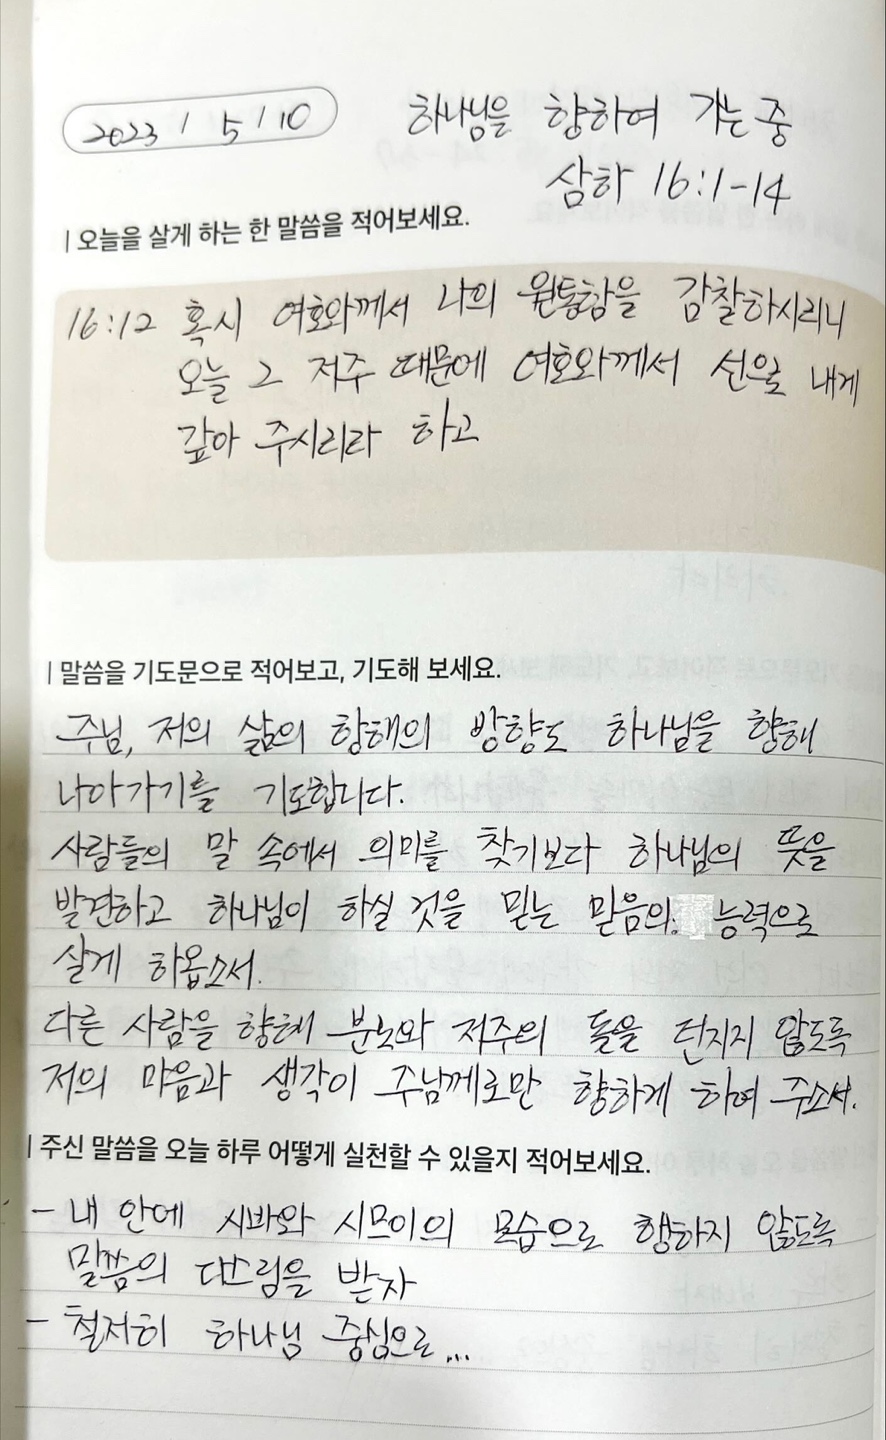 2023 / 5 / 10
하나님을 향하여 가는 중
삼하 16:1-14
| 오늘을 살게 하는 한 말씀을 적어보세요.
16:12 혹시 여호와께서 나의 원통함을 감찰하시리니
오늘 그 저주 때문에 여호와께서 선으로 내게
갚아 주시리라 하고
| 말씀을 기도문으로 적어보고, 기도해 보세요.
주님, 저의 삶의 항해의 방향도 하나님을 향해
나아가기를 기도합니다.
사람들의 말 속에서 의미를 찾기보다 하나님의 뜻을
발견하고 하나님이 하실 것을 믿는 믿음의 능력으로
살게 하옵소서.
다른 사람을 향해 분노와 저주의 돌을 던지지 않도록
저의 마음과 생각이 주님께로만 향하게 하여 주소서.
| 주신 말씀을 오늘 하루 어떻게 실천할 수 있을지 적어보세요.
- 내 안에 시바와 시므이의 모습으로 행하지 않도록
말씀의 다스림을 받자
- 철저히 하나님 중심으로...